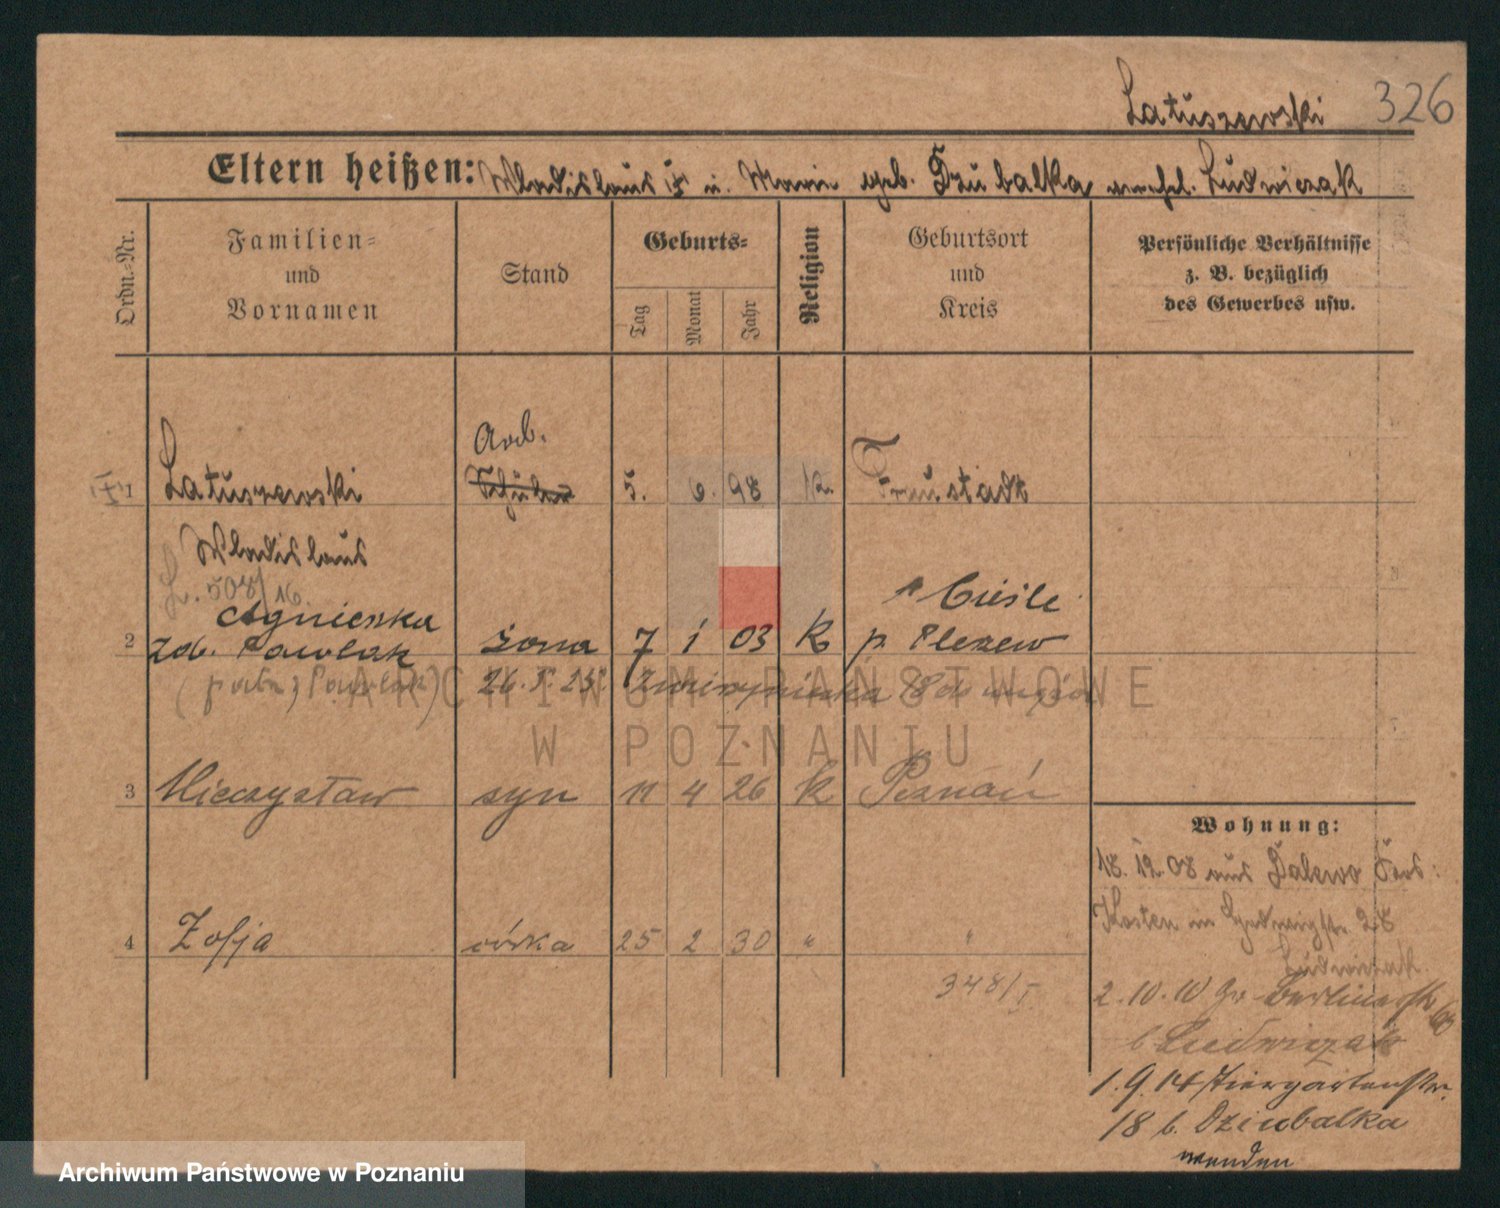 Latuszewski 326
Eltern heißen: Wladislaus u. Marie geb. Dziubalka verehel. Ludwiczak
Ordn.-Nr.
Familien- und Vornamen
Stand
Geburts-
Tag
Monat
Jahr
Religion
Geburtsort und Kreis
Persönliche Verhältnisse
z. B. bezüglich
des Gewerbes usw.
Arb.
1 Latuszewski Schüler 5. 6. 98 K. Fraustadt
Wladislaus
L. 508/16
Agnieszka Cieśle
2 zd. Pawlak żona 7 1 03 K p. Pleszew
Pawlak) 26. 5. 25. Zwierzyniecka 18 do męża
3 Mieczysław syn 11 4 26 K Poznań
Wohnung:
18. 12. 08 aus Dalewo Krs:
Kosten in Hedwigstr. 28
4 Zofja córka 25 2 30 " " "
Ludwiczak
348/I.
2. 10. 10 Gr Berlinerstr 68
b Ludwiczak
1. 9. 14 Tiergartenstr.
18 b. Dziubalka
wenden
ARCHIWUM PAŃSTWOWE
W POZNANIU
Archiwum Państwowe w Poznaniu